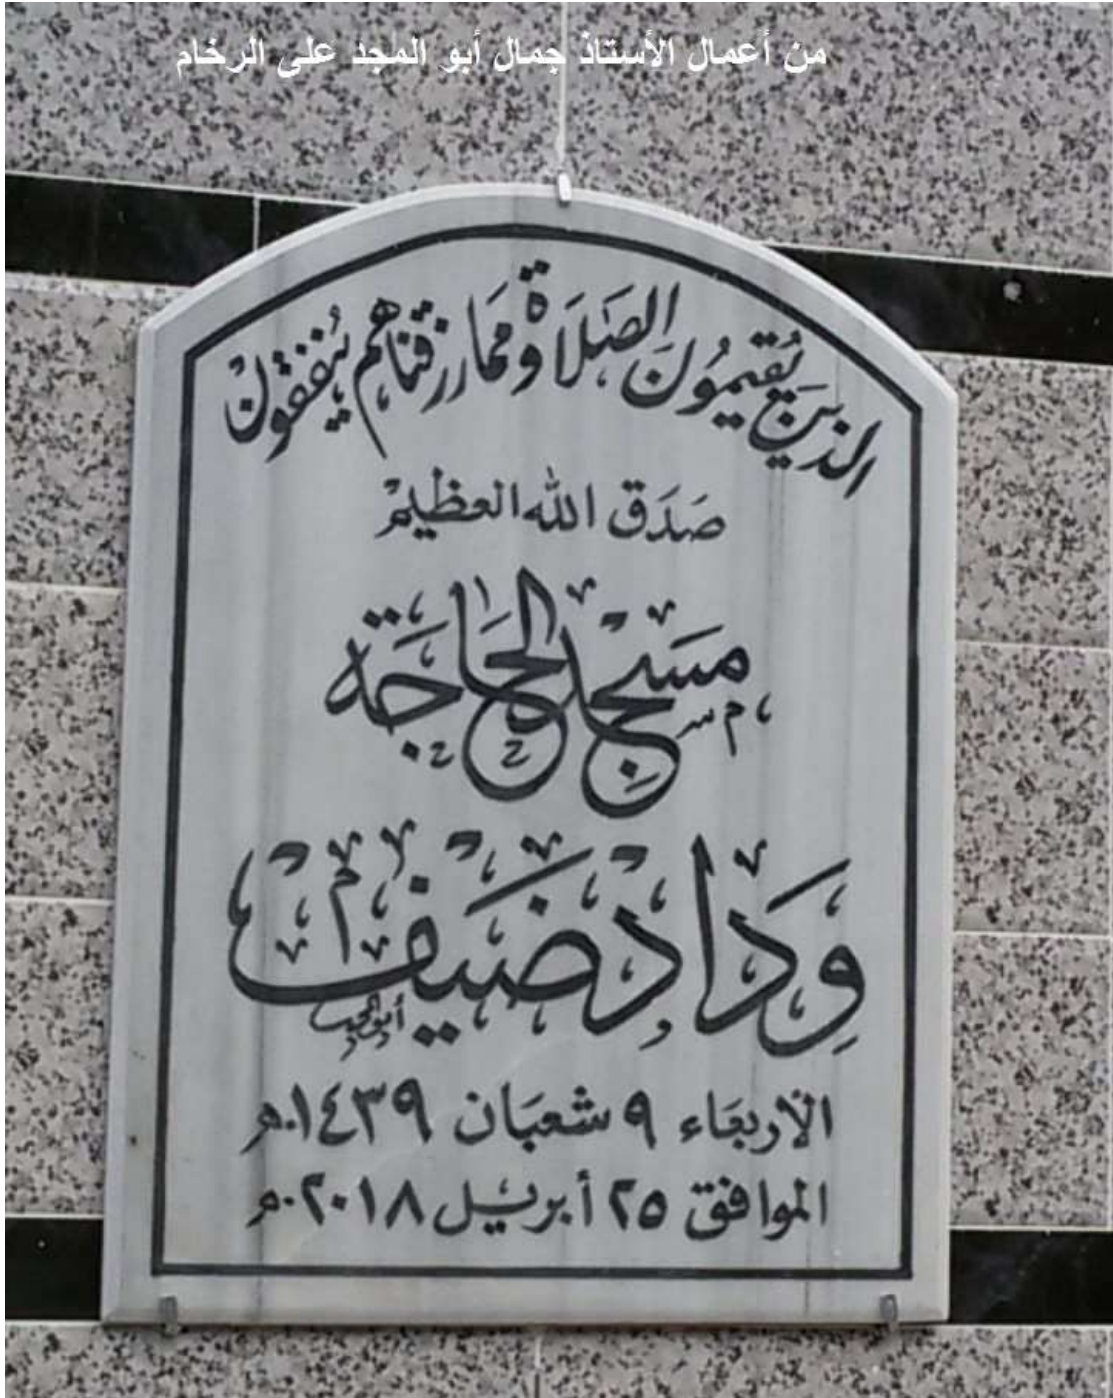 من أعمال الأستاذ جمال أبو المجد على الرخام
الذين يُقيمُونَ الصَلَاة ومما رزقناهم ينفقون
صَدَق الله العظيم
مسجد الحَاجَة
وِدَاد ضَيف
أبو المجد
الأربعَاء ٩ شعبَان ١٤٣٩هـ
الموافق ٢٥ أبريل ٢٠١٨م